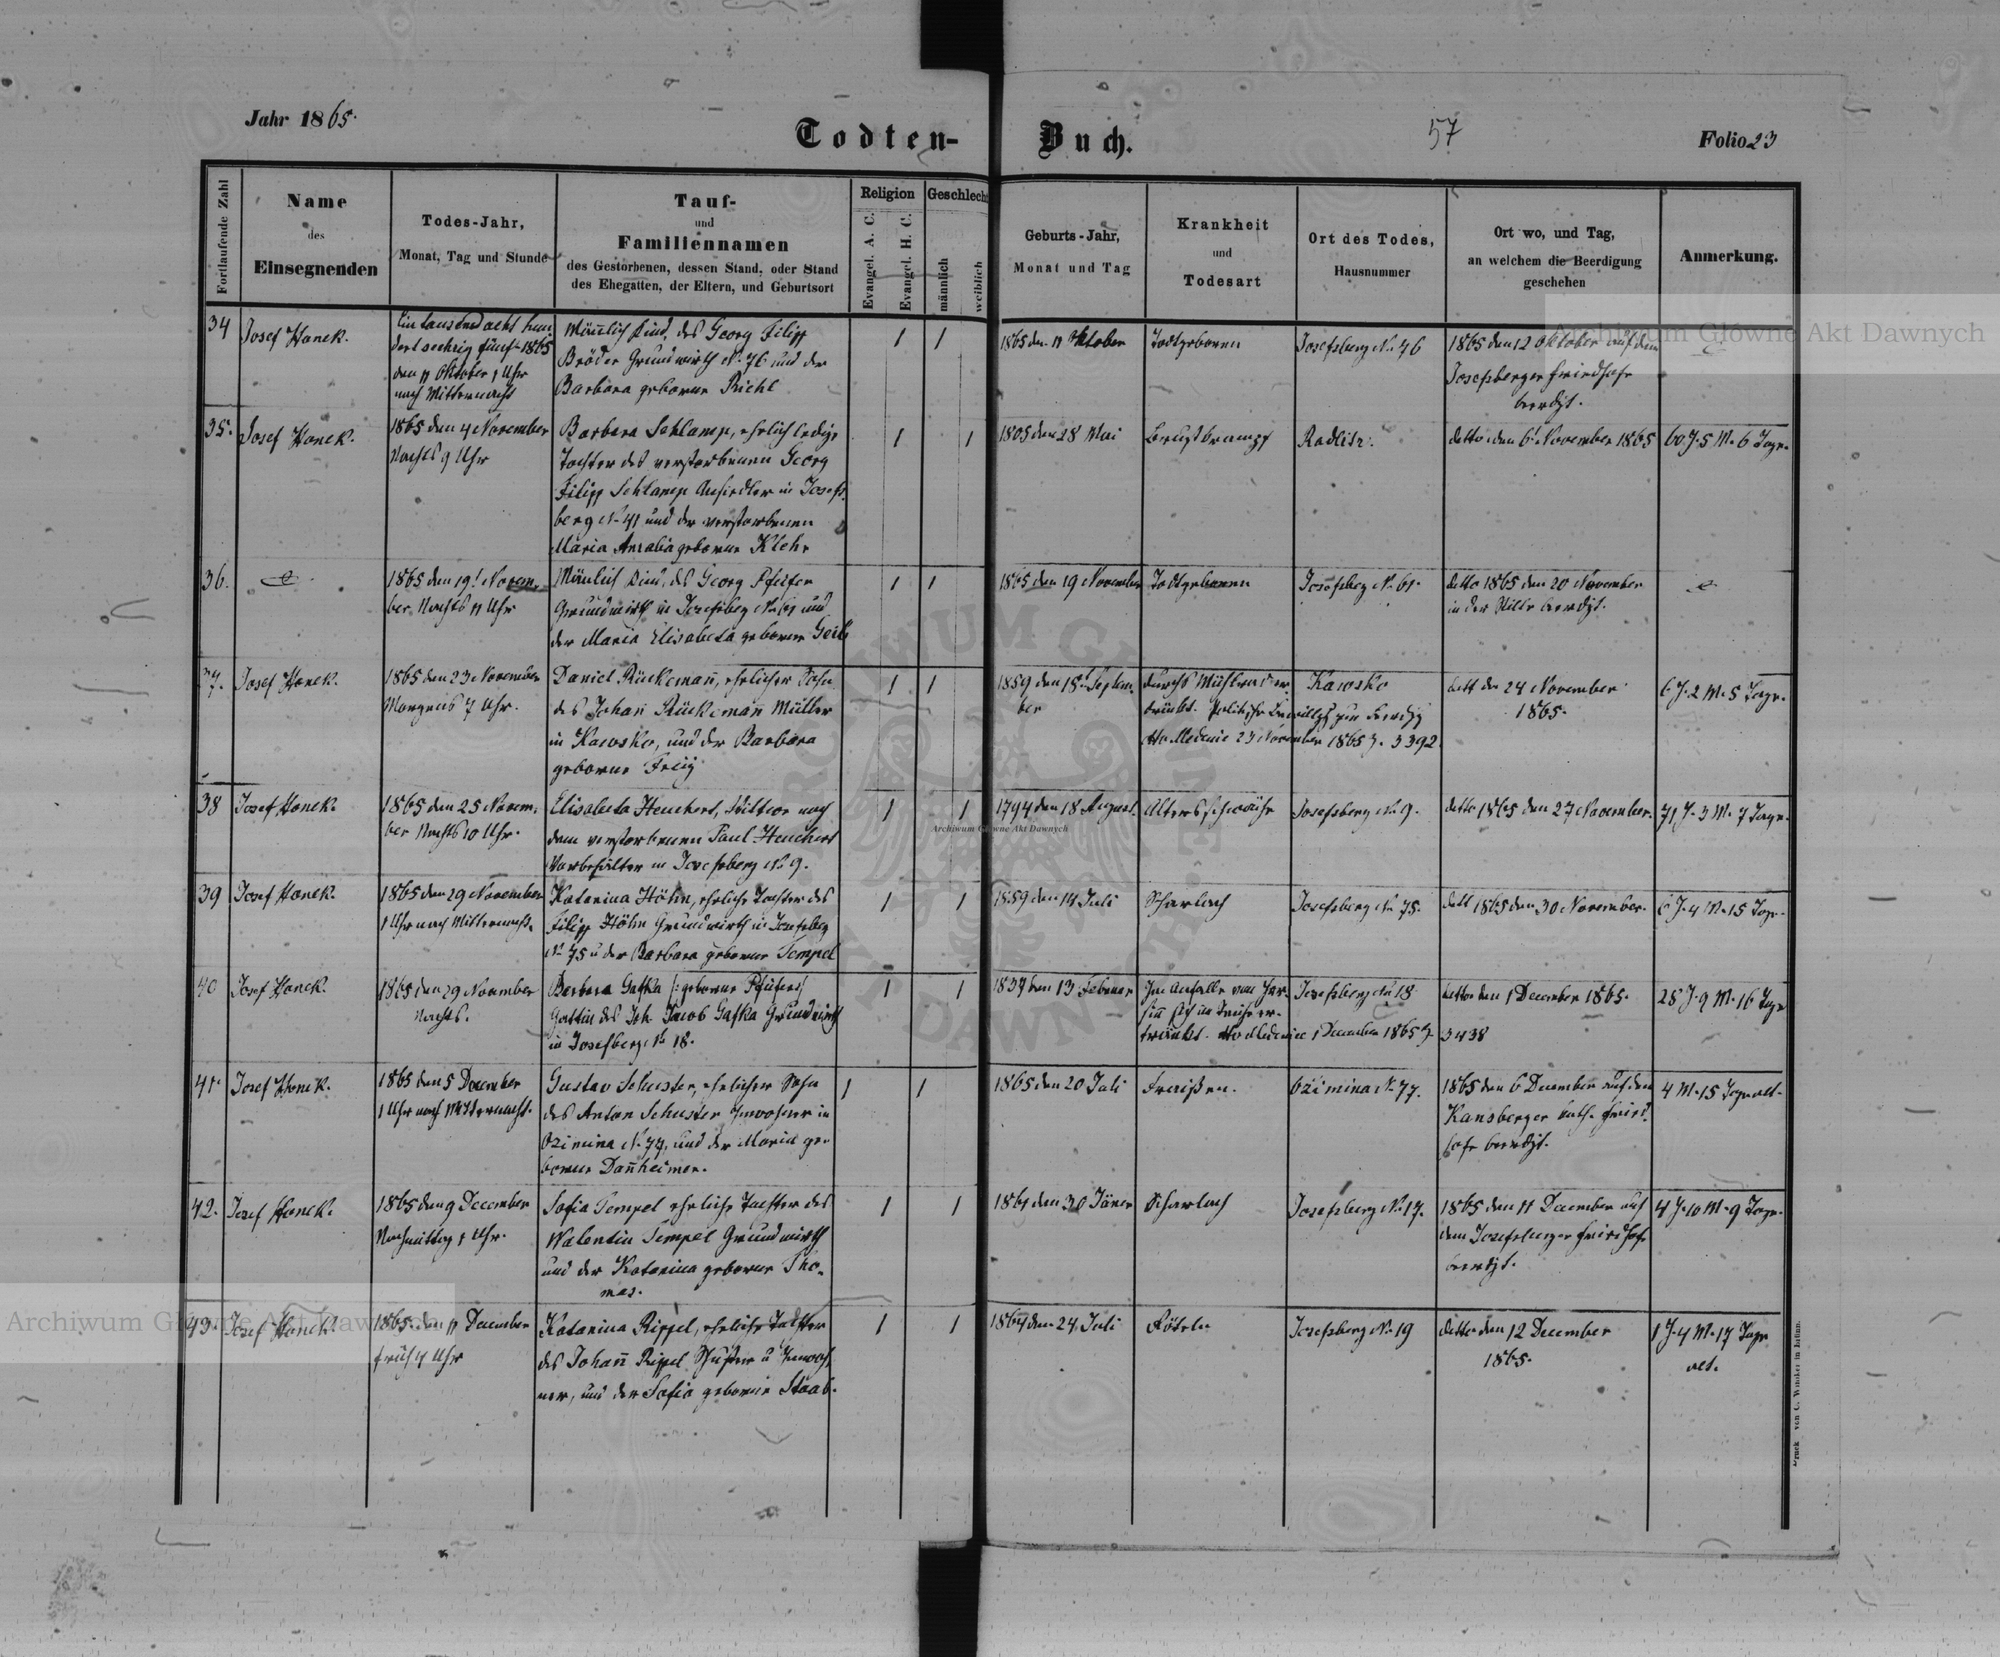 Jahr 1865.
Todten-Buch.
57
Folio 23
Fortlaufende Zahl
Name
des
Einsegnenden
Todes-Jahr,
Monat, Tag und Stunde
Tauf-
und
Familiennamen
des Gestorbenen, dessen Stand, oder Stand
des Ehegatten, der Eltern, und Geburtsort
Religion
Evangel. A. C.
Evangel. H. C.
Geschlecht
männlich
weiblich
Geburts-Jahr,
Monat und Tag
Krankheit
und
Todesart
Ort des Todes,
Hausnummer
Ort wo, und Tag,
an welchem die Beerdigung
geschehen
Anmerkung.
34
Josef Hanek.
Ein tausend acht hun-
dert sechzig fünf 1865
den 11 Oktober 1 Uhr
nach Mitternacht
Mänlich Kind, des Georg Filipp
Bröder Grundwirth No. 76 und der
Barbara geborne Richl
1
1
1865 den 11 Oktober
Todtgeboren
Josefsberg No. 76
1865 den 12 Oktober auf dem
Josefsberger Friedhofe
beerdigt.
35.
Josef Hanek.
1865 den 4 November
Nachts 9 Uhr
Barbara Schlamp, ehrlich ledige
Tochter des verstorbenen Georg
Filipp Schlamp Ansiedler in Josefs-
berg No. 41 und der verstorbenen
Maria geborne Klehr
1
1
1805 den 28 Mai
Brustkrampf
Radlitz.
detto den 6 November 1865
60 J. 5 M. 6 Tage.
36.
1865 den 19 Novem-
ber Nachts 11 Uhr
Mänlich Kind, des Georg Pfeifer
Grundwirth in Josefsberg No. 61 und
der Maria Elisabeta geborne Geib
1
1
1865 den 19 November
Todtgeboren
Josefsberg No. 61.
detto 1865 den 20 November
in der Stille beerdigt.
37.
Josef Hanek.
1865 den 23 November
Morgens 7 Uhr.
Daniel Rückemañ, ehrlicher Sohn
des Johañ Rückemañ Müller
in Kawsko, und der Barbara
geborne Freÿ
1
1
1859 den 18 Septem-
ber
Kawsko
Medenice 23 November 1865 Z. 3392.
detto den 24 November
1865.
6 J. 2 M. 5 Tage.
38
Josef Hanek.
1865 den 25 Novem-
ber Nachts 10 Uhr.
Elisabeta Heuchert, Wittwe nach
dem verstorbenen Paul Heuchert
Vorbehälter in Josefsberg No. 9.
1
1
1794 den 18 August
Altersschwäche
Josefsberg No. 9.
detto 1865 den 27 November.
71 J. 3 M. 7 Tage.
39
Josef Hanek.
1865 den 29 November
1 Uhr nach Mitternacht.
Katarina Höhn, ehrliche Tochter des
Filipp Höhn Grundwirth in Josefsberg
No. 75 u der Barbara geborne Tempel
1
1
1859 den 14 Juli
Scharlach
Josefsberg No. 75.
dett 1865 den 30 November.
6 J. 4 M. 15 Tage.
40
Josef Hanek.
1865 den 29 November
Nachts.
Barbara Gafka /: geborne Pfeifer:/
Gattin des Joh. Jacob Gafka Grundwirth
in Josefsberg No. 18.
1
1
1837 den 13 Februar
Im Anfalle von Irr-
sinn sich im Teiche er-
tränkt. Medenice 1 December 1865 Z. 3438
Josefsberg No 18
detto den 1 December 1865.
28 J. 9 M. 16 Tage
41.
Josef Hanek.
1865 den 5 December
1 Uhr nach Mitternacht.
Gustav Schuster, ehrlicher Sohn
des Anton Schuster Inwohner in
Ozimina No. 77, und der Maria ge-
borne Dañheimer.
1
1
1865 den 20 Juli
Fraißen.
Ozimina No. 77.
1865 den 6 December auf dem
Ransberger kath. Fried-
hofe beerdigt.
4 M. 15 Tage alt.
42.
Josef Hanek.
1865 den 9 December
Nachmittag 1 Uhr.
Sofia Tempel ehrliche Tochter des
Walentin Tempel Grundwirth
und der Katarina geborne Tho-
mas.
1
1
1861 den 30 Jäner
Scharlach
Josefsberg No. 17.
1865 den 11 December auf
dem Josefsberger Friedhofe
beerdigt.
4 J. 10 M. 9 Tage.
43.
Josef Hanek.
1865 den 11 December
früh 4 Uhr
Katarina Rippel, ehrliche Tochter
des Johañ Rippel Schuster u Inwoh-
ner, und der Sofia geborne Staab.
1
1
1864 den 24. Juli
Röteln
Josefsberg No. 19
detto den 12 December
1865.
1 J. 4 M. 17 Tage
alt.
Archiwum Główne Akt Dawnych
Archiwum Główne Akt Dawnych
Archiwum Główne Akt Dawnych
ARCHIWUM GŁÓWNE AKT DAWNYCH